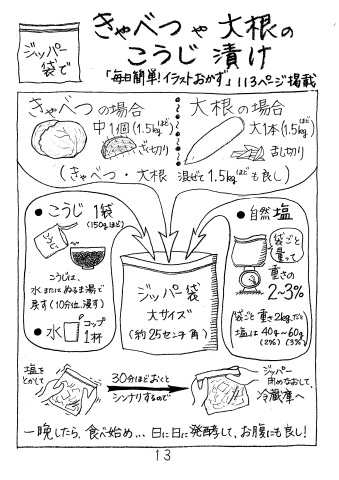 ジッパー
袋で
きゃべつや大根の
こうじ漬け
「毎日簡単!イラストおかず」113ページ掲載
きゃべつの場合
中1個(1.5kgほど)
ざく切り
大根の場合
大1本(1.5kgほど)
乱切り
(きゃべつ・大根 混ぜて1.5kgほども良し)
●こうじ1袋
(150gほど)
こうじは、
水またはぬるま湯で
戻す(10分位、浸す)
●水 コップ
1杯
ジッパー袋
大サイズ
(約25センチ角)
●自然塩
袋ごと
量って
重さの
2~3%
袋ごと重さ2kgだと
塩は40g~60g
(2%) (3%)
塩を
とかして
30分ほどおくと
シンナリするので
ジッパー
閉めなおして、
冷蔵庫へ
一晩したら、食べ始め…日に日に発酵して、お腹にも良し!
13